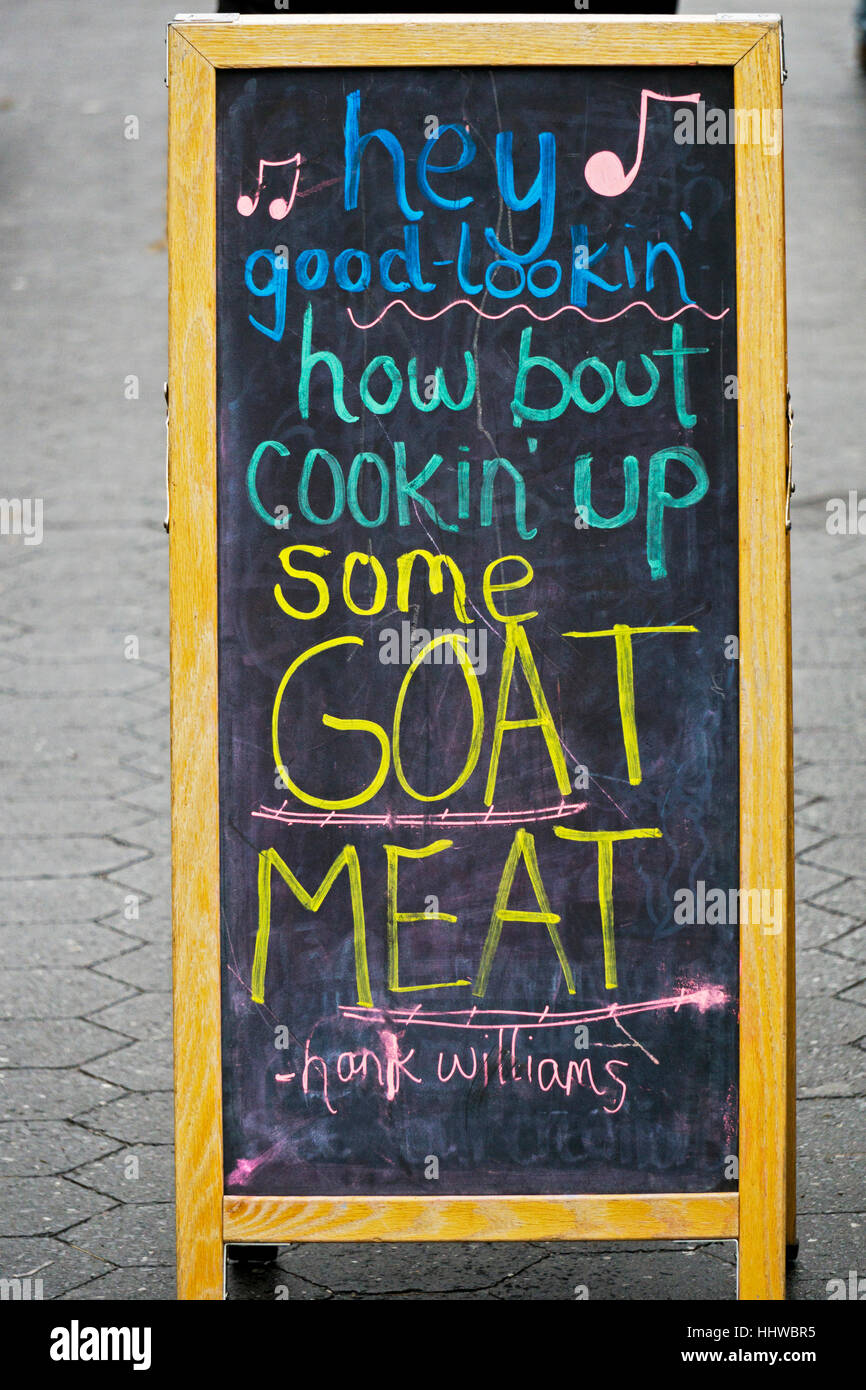 hey
good-lookin'
how bout
cookin' up
some
GOAT
MEAT
-hank williams
alamy
Image ID: HHWBR5
www.alamy.com